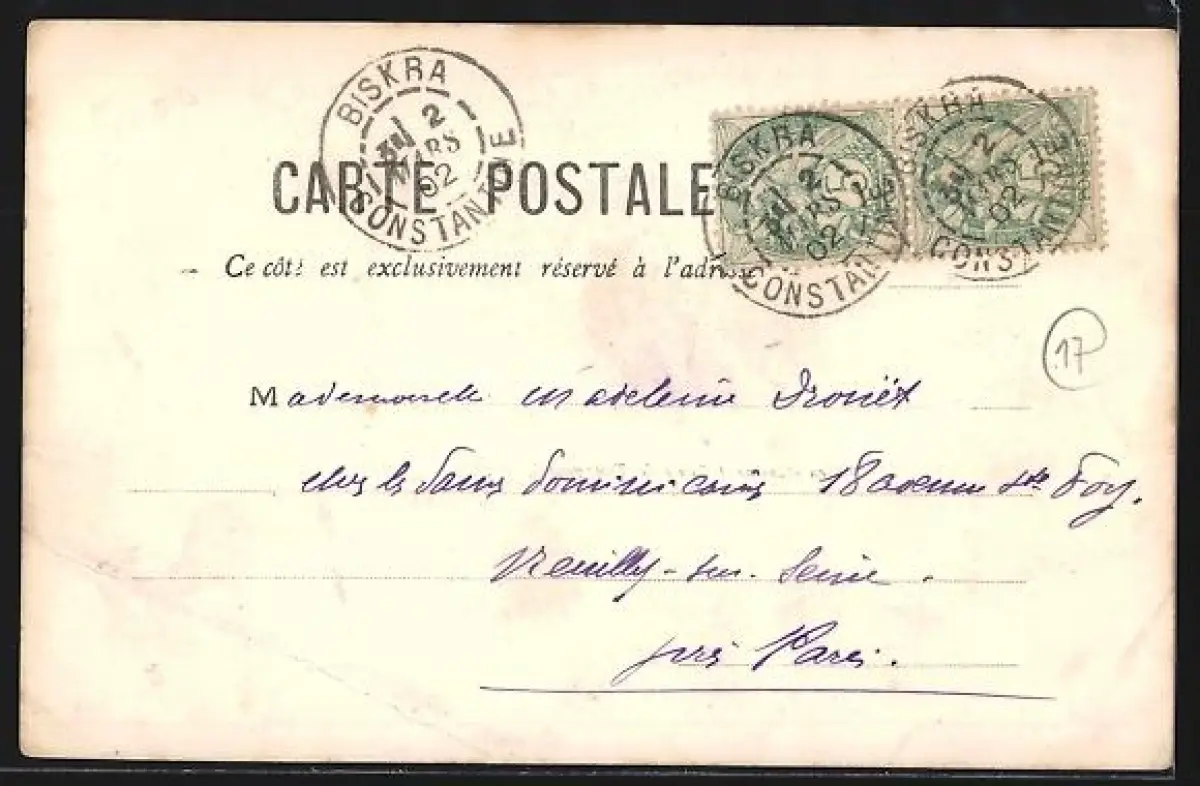 BISKRA
2
MARS
02
CONSTANTINE
BISKRA
2
MARS
02
CONSTANTINE
BISKRA
2
MARS
02
CONSTANTINE
CARTE POSTALE
Ce côté est exclusivement réservé à l'adresse
17
Mademoiselle Madeleine Drouët
chez les Dames Dominicaines 18 avenue Ste Foy.
Neuilly-sur-Seine.
près Paris.